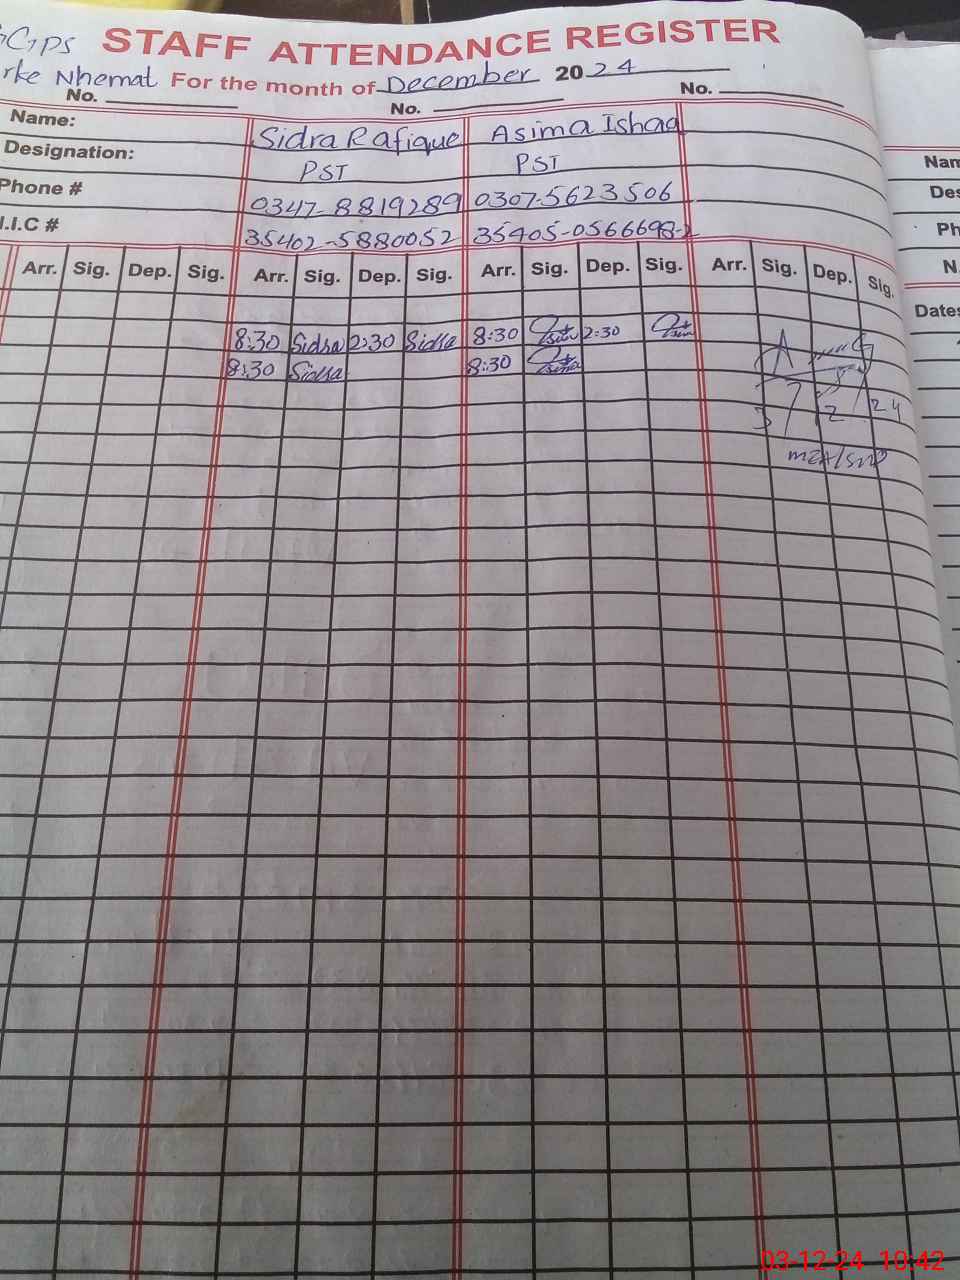 GGPS STAFF ATTENDANCE REGISTER
rke Nhemat For the month of December 2024
No. No. No.
Name: Sidra Rafique Asima Ishaq
Designation: PST PST
Phone # 0347-8819289 0307-5623506
I.I.C # 35402-5880052 35405-0566698-2
Arr. Sig. Dep. Sig. Arr. Sig. Dep. Sig. Arr. Sig. Dep. Sig. Arr. Sig. Dep. Sig.
8:30 Sidra 2:30 Sidra 8:30 Asima 2:30
8:30 Sidra 8:30 Asima
3/12/24
MEA/SKP
Nam
Des
Ph
N.
Dates
03-12-24 10:42